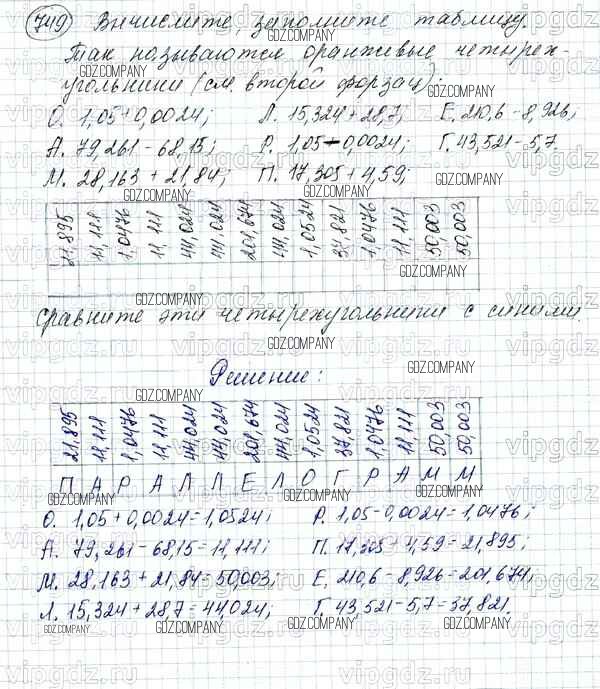 749 Вычислите, заполните таблицу.
Так называются оранжевые четырех-
угольники (см. второй форзац):
О. 1,05+0,0024; Л. 15,324+28,7; Е. 210,6-8,926;
А. 79,261-68,15; Р. 1,05-0,0024; Г. 43,521-5,7.
М. 28,163+21,84; П. 17,305+4,59;
21,895 11,111 1,0476 11,111 44,024 44,024 201,674 44,024 1,0524 37,821 1,0476 11,111 50,003 50,003
Сравните эти четырехугольники с синими.
Решение:
21,895 11,111 1,0476 11,111 44,024 44,024 201,674 44,024 1,0524 37,821 1,0476 11,111 50,003 50,003
П А Р А Л Л Е Л О Г Р А М М
О. 1,05+0,0024=1,0524; Р. 1,05-0,0024=1,0476;
А. 79,261-68,15=11,111; П. 17,305+4,59=21,895;
М. 28,163+21,84=50,003; Е. 210,6-8,926=201,674;
Л. 15,324+28,7=44,024; Г. 43,521-5,7=37,821.
GDZ.COMPANY
vipgdz.com